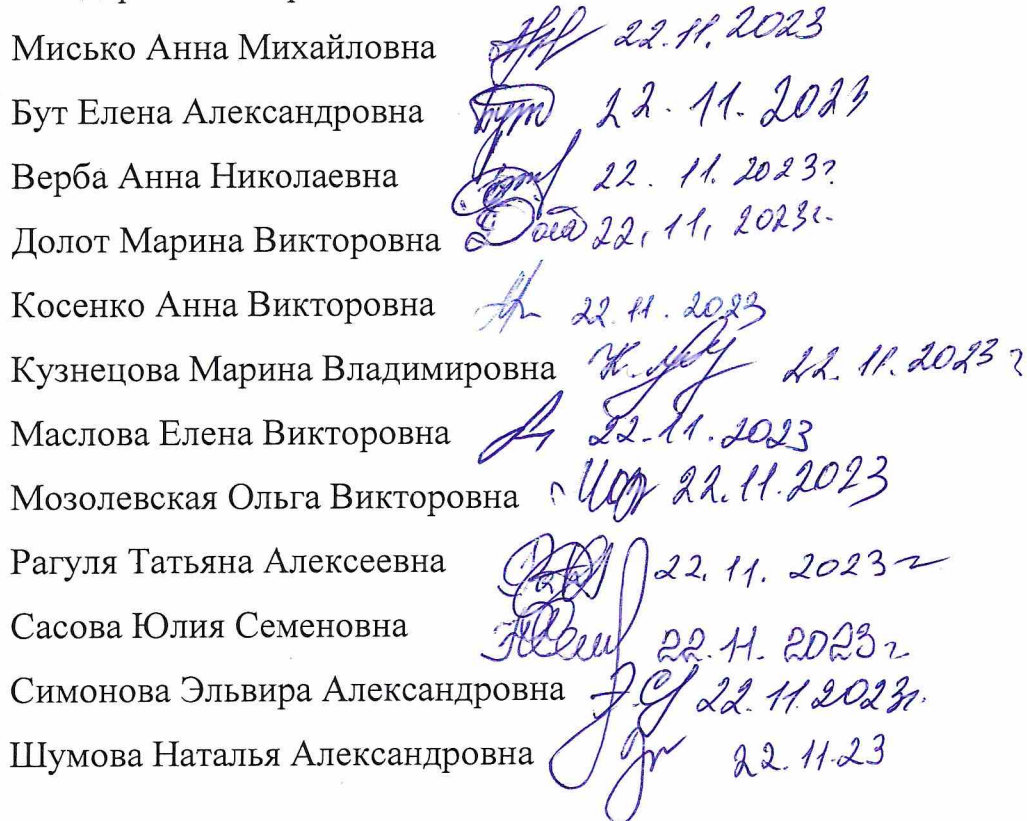 Мисько Анна Михайловна 22.11.2023
Бут Елена Александровна Бут 22.11.2023
Верба Анна Николаевна 22.11.2023г.
Долот Марина Викторовна 22.11.2023г.
Косенко Анна Викторовна 22.11.2023
Кузнецова Марина Владимировна 22.11.2023г
Маслова Елена Викторовна 22.11.2023
Мозолевская Ольга Викторовна 22.11.2023
Рагуля Татьяна Алексеевна 22.11.2023г
Сасова Юлия Семеновна 22.11.2023г
Симонова Эльвира Александровна 22.11.2023г.
Шумова Наталья Александровна 22.11.23